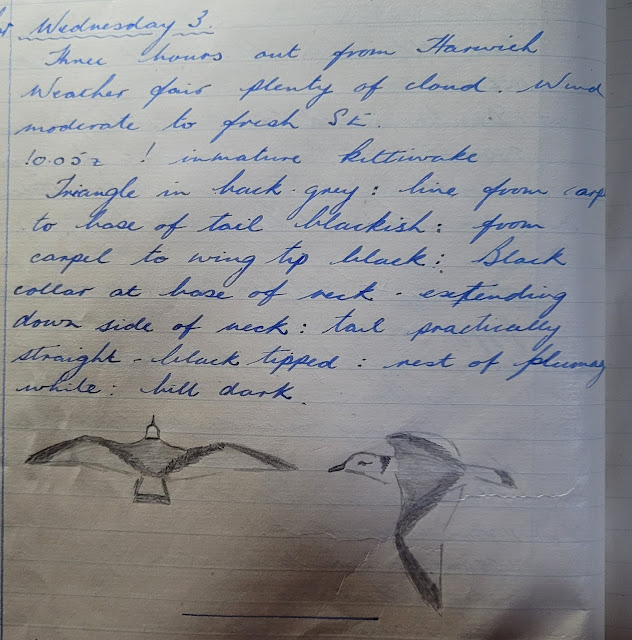 Wednesday 3.
Three hours out from Harwich
Weather fair plenty of cloud. Wind
moderate to fresh SE.
10.05z 1 immature kittiwake
Triangle in back grey: line from carp
to base of tail blackish: from
carpel to wing tip black: Black
collar at base of neck - extending
down side of neck: tail practically
straight - black tipped: rest of plumag
white: bill dark.